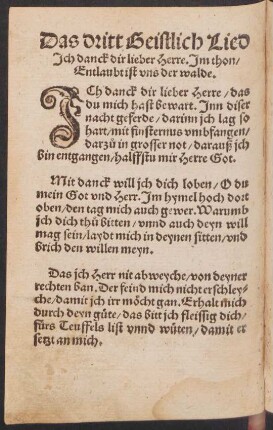 Das dritt Geistlich Lied
Ich danck dir lieber Herre. Im thon/
Entlaubt ist vns der walde.
ICh danck dir lieber Herre/das
du mich hast bewart. Inn diser
nacht geferde/darinn ich lag so
hart/mit finsternus vmbfangen/
darzů in grosser not/darauß ich
bin entgangen/halffstu mir Herre Got.
Mit danck will ich dich loben/O du
mein Got vnd Herr. Im hymel hoch dort
oben/den tag mich auch gewer. Warumb
ich dich thů bitten/vnnd auch deyn will
mag sein/laydt mich in deynen sitten/vnd
brich den willen meyn.
Das ich Herr nit abweyche/von deyner
rechten ban. Der feind mich nicht erschley-
che/damit ich irr möcht gan. Erhalt mich
durch deyn güte/das bitt ich fleissig dich/
fürs Teuffels list vnnd wüten/damit er
setzt an mich.